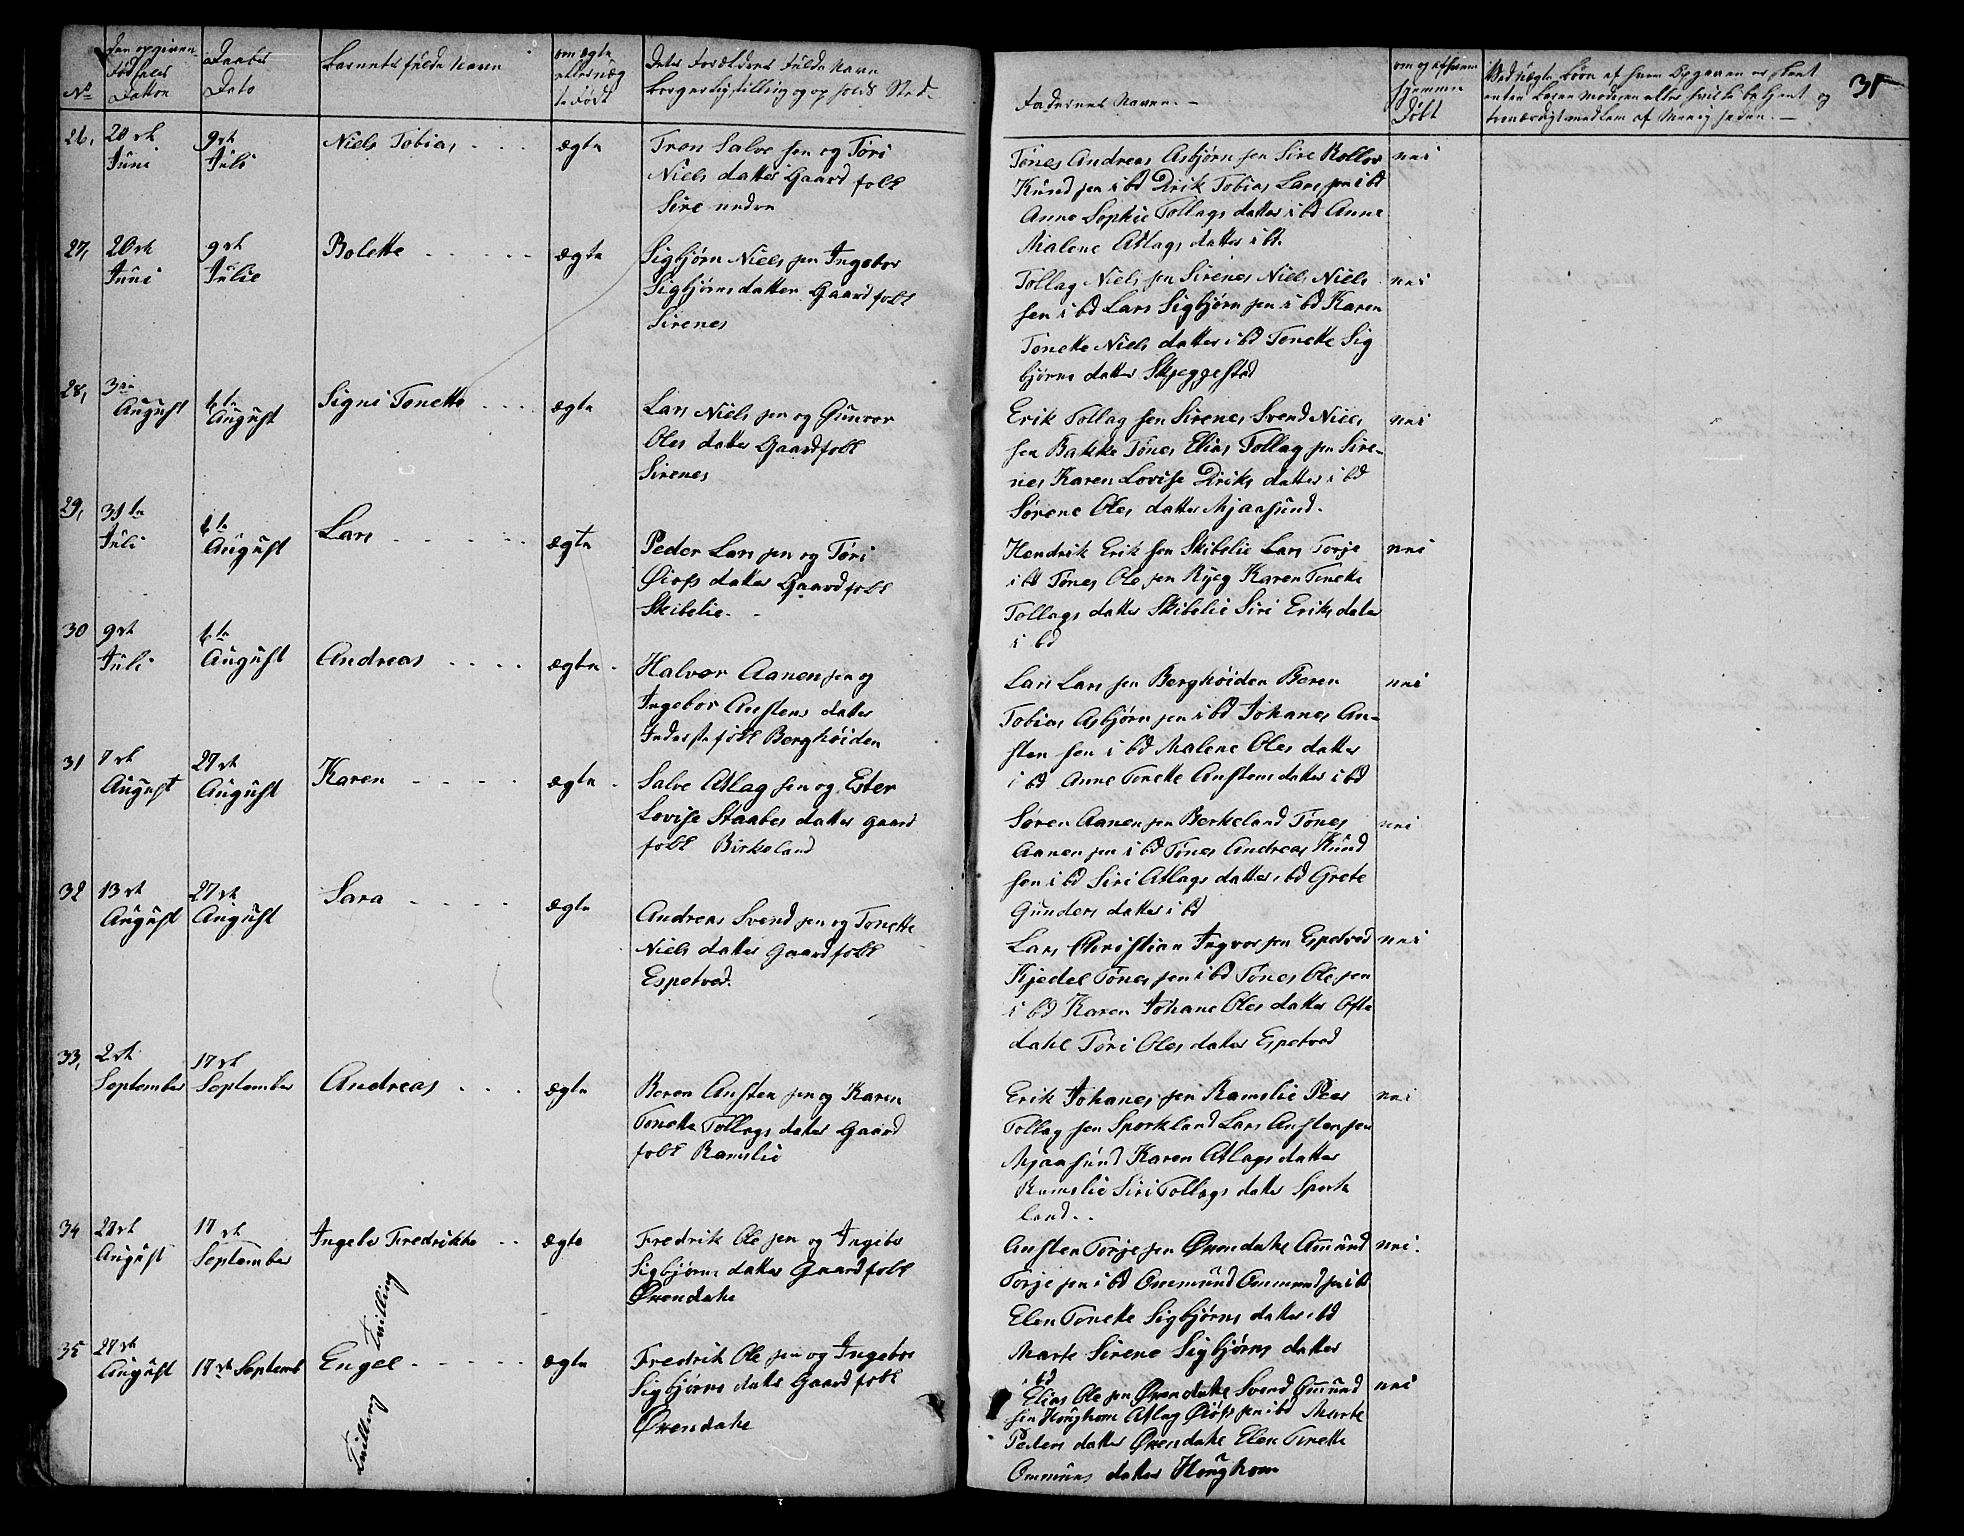 No
Den opgivne Fødsels Datton
Daabs Dato
Barnets fulde Navn
om ægte eller uæg te Født
Dets Forældres Fulde Navn
Borgerligstilling og op holds Sted.
Fadernes Navne. —
om og af hvem hjemme Døbt
31
26,
20de Juni
9de Juli
Niels Tobias
ægte
Tron Salve sen og Tøri
Niels datter Gaard folk
Sire nedre
Tønes Andreas Asbjørn sen Sire Rollov
Knud sen i bd Dirik Tobias Lars sen i bd
Anne Sophie Tollags datter i bd Anne
Malene Atlags datter i bd.
nei
27,
20de Juni
9de Julie
Bolette
ægte
Sigbjørn Niels sen Ingebor
Sigbjørns datter Gaard folk
Sirenes
Tollag Niels sen Sirenes Niels Niels
sen i bd Lars Sigbjørn sen i bd Karen
Tonette Niels datter i bd Tonette Sig
bjørns datter Skjeggestad
nei
28,
3die August
6te August
Signi Tonette
ægte
Lars Niels sen og Gunvor
Oles datter Gaardfolk
Sirenes
Erik Tollag sen Sirenes Svend Niels
sen Bakke Tønes Elias Tollag sen Sire-
nes Karen Lovise Diriks datter i bd
Sørene Oles datter Mjaasund.
nei
29,
31te Juli
6te August
Lars
ægte
Peder Lars sen og Tøri
Øiøfs datter Gaardfolk
Skibelie.
Hendrik Erik sen Skibelie Lars Torje
i bd Tønes Ole sen Ryeg Karen Tonette
Tollags datter Skibelie Siri Eriks dater
i bd
nei
30
9de Juli
6te August
Andreas
ægte
Halvor Aanen sen og
Ingebor Anstens datter
Inderste folk Berghøiden
Lars Lars sen Berghøiden Beren
Tobias Asbjørn sen i bd Johanes An-
sten sen i bd Malene Oles datter
i bd Anne Tonette Anstens datter i bd
nei
31
7de August
27de August
Karen
ægte
Salve Atlag sen og Ester
Lovise Staabes datter gaard
folk Birkeland
Søren Aanen sen Berkeland Tønes
Aanen sen i bd Tønes Andreas Knud
sen i bd Siri Atlags datter i bd Grete
Gunders datter i bd
nei
32
13de August
27de August
Sara
ægte
Andreas Svend sen og Tonette
Niels datter Gaard folk
Espetved.
Lars Christian Ingvor sen Espetved
Kjedel Tønes sen i bd Tønes Ole sen
i bd Karen Johane Oles datter Ofte
dahl Tøri Oles datter Espetved
nei
33,
2de September
17de September
Andreas
ægte
Beren Ansten sen og Karen
Tonette Tollags datter Gaard
folk Ramslie
Erik Johanes sen Ramslie Peer
Tollag sen Sporkland Lars Ansten sen
Mjaasund Karen Atlags datter
Ramslie Siri Tollags datter Spork
land.
nei
34
27de August
17de September
Ingebor Fredrikke
Tvilling
ægte
Fredrik Ole sen og Ingebor
Sigbjørns datter Gaard folk
Øvendahl
Ansten Torje sen Øvendahl Amund
Torje sen i bd Ommund Ommund sen i bd
Elen Tonette Sigbjørns datter i bd
Marte Sirene Sigbjørns datter
i bd
nei.
35
27de August
17de Septemb
Engel
Tvilling
ægte
Fredrik Ole sen og Ingebor
Sigbjørns datter Gaard folk
Øvendahl
Elias Ole sen Øvendahl Svend Omund
sen Houghom Atlag Øiøfs sen i bd Marte
Peders datter Øvendahl Elen Tonette
Ommuns datter Houghom
nei